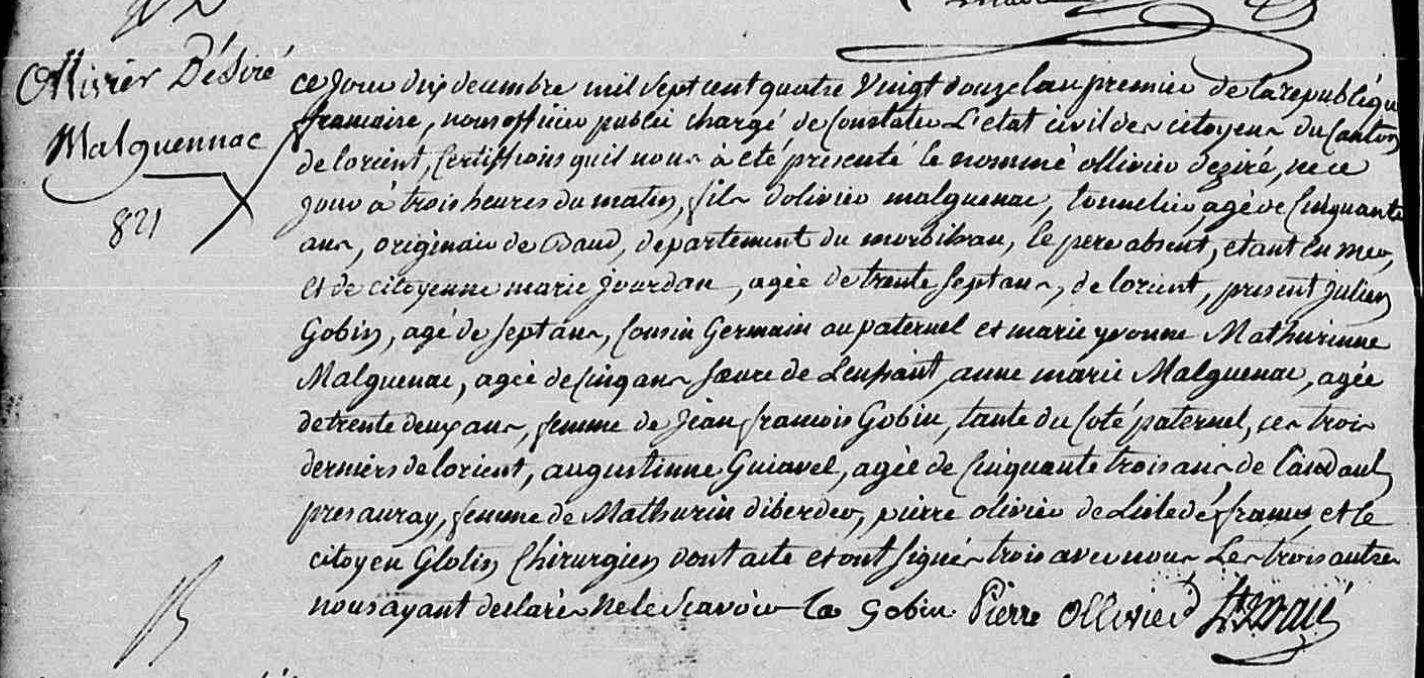 Ollivier Désiré
Malguennac
821
ce jour dix decembre mil sept cent quatre vingt douze l'an premier de la republique
francaise, nous officier public chargé de constater L'etat civil des citoyens du Canton
de lorient, certiffions qu'il nous à été présenté le nommé ollivier deziré, né ce
jour à trois heures du matin, fils d'olivier malguenac, tonnelier, agé de cinquante
ans, originaire de Baud, departement du morbihan, le pere absent, etant en mer,
et de citoyenne marie jourdan, agée de trente sept ans, de lorient, present julien
Gobin, agé de sept ans, cousin Germain au paternel et marie yvonne Mathurinne
Malguenac, agée de cinq ans soeure de L'enfant, anne marie Malguenac, agée
de trente deux ans, femme de jean francois Gobin, tante du coté paternel, ces trois
derniers de lorient, augustinne Guiavel, agée de cinquante trois ans de Landaul
pres auray, femme de Mathurin diberder, pierre olivier de L'isle de france, et le
citoyen Glotin Chirurgien dont acte et ont signés trois avec nous Les trois autres
nous ayant declarés ne le scavoir Gobin Pierre Ollivier